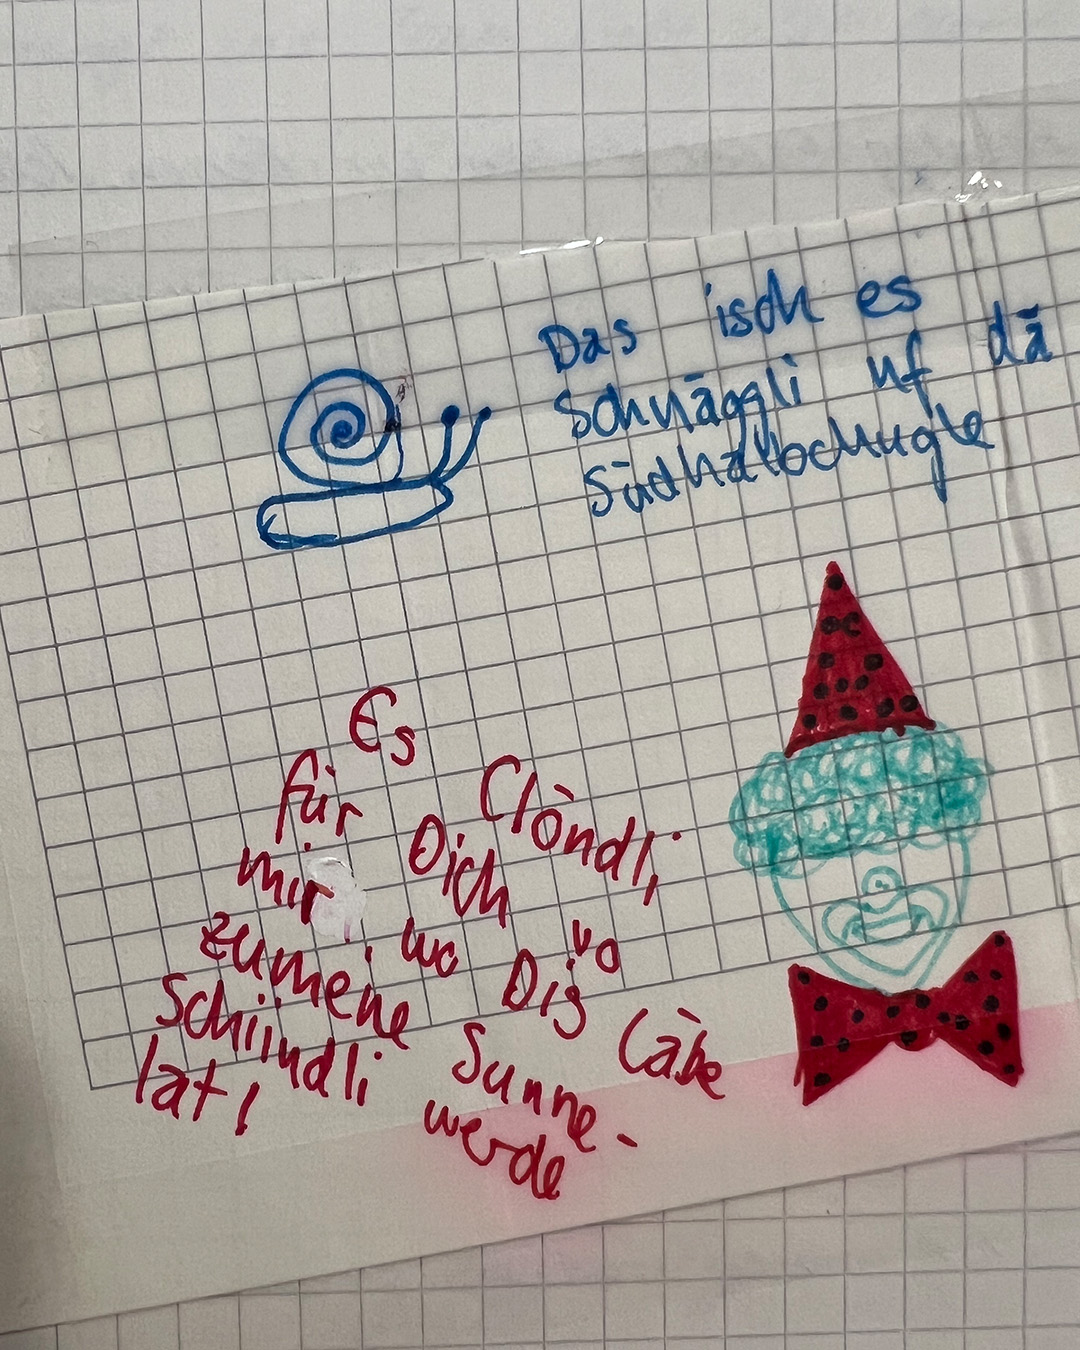 Das isch es
Schnäggli uf dä
Südhalbchugle
Es Clöndli,
für Dich vo
mir, wo Dis Läbe
zumene Sunne-
Schiindli werde
lat!